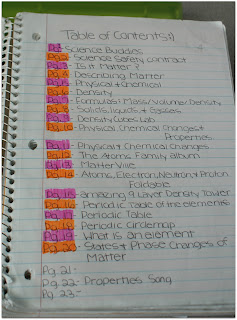 Table of Contents:)
Pg.1- Science Buddies
Pg.2- Science Safety contract
Pg.3- Is it Matter?
Pg.4- Describing Matter
Pg.5- Physical & Chemical
Pg.6- Density
Pg.7- Formulas: Mass/Volume/Density
Pg.8- Solids, liquids & Gasses
Pg.9- Density Cubes Lab
Pg.10- Physical Chemical Changes+
Properties
Pg.11- Physical & Chemical Changes
Pg.12- The Atomic Family album
Pg.13- Matterville
Pg.14- Atomic, Electron, Neutron & Proton
Foldable
Pg.15- amazing 9 Layer Density Tower
Pg.16- Periodic Table of the elements
Pg.17- Periodic Table
Pg.18- Periodic Circlemap
Pg.19- What is An element
Pg.20- States & Phase Changes of
Matter
Pg.21-
Pg.22- Properties Song
Pg.23-